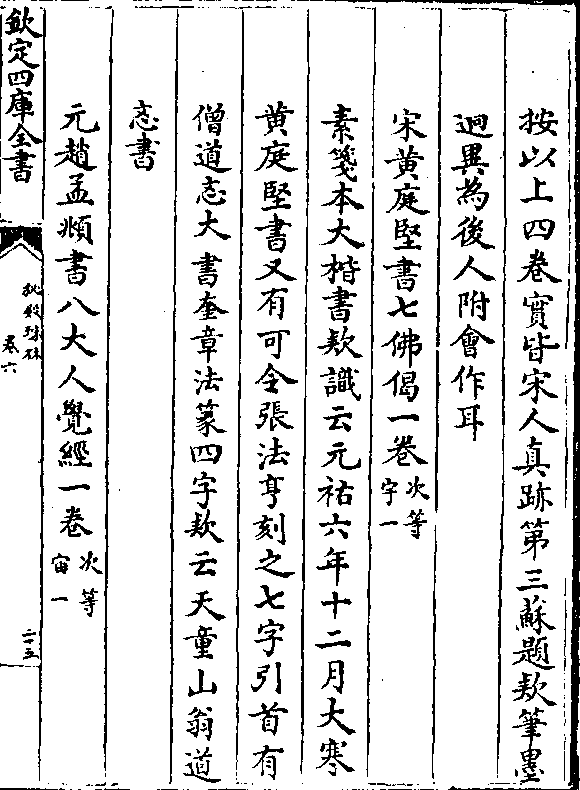 按以上四卷實皆宋人真跡第三蘇題欵筆墨
迥異為後人附會作耳
宋黄庭堅書七佛偈一卷次等字一
素箋本大楷書欵識云元祐六年十二月大寒
黄庭堅書又有可令張法亨刻之七字引首有
僧道忞大書奎章法篆四字欵云天童山翁道
忞書
元趙孟頫書八大人覺經一卷次等宙一
欽定四庫全書
秘殿珠林
卷六
二十五